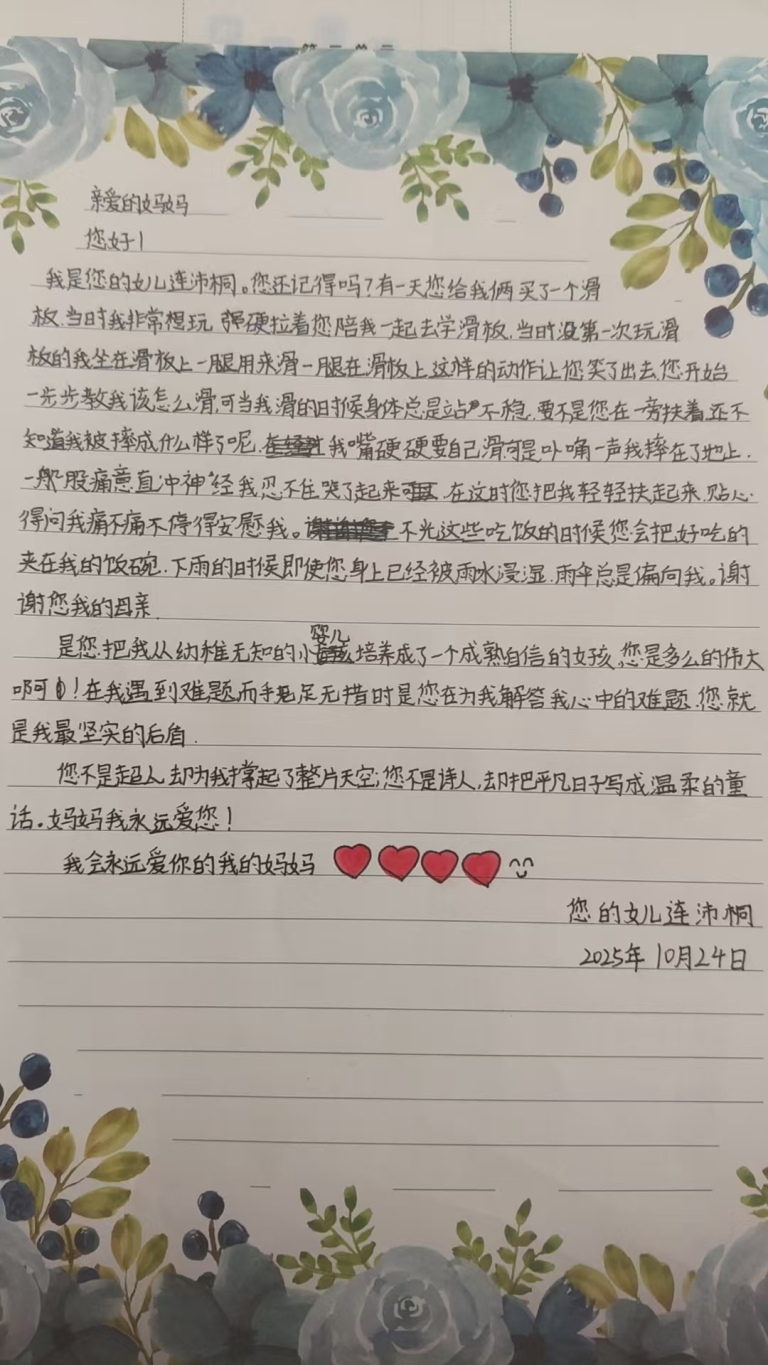 第二单元
亲爱的妈妈
您好!
我是您的女儿连沛桐。您还记得吗?有一天您给我俩买了一个滑
板,当时我非常想玩,强硬拉着您陪我一起去学滑板,当时没第一次玩滑
板的我坐在滑板上一腿用来滑一腿在滑板上,这样的动作让您笑了出去,您开始
一步步教我该怎么滑,可当我滑的时候身体总是站不稳,要不是您在一旁扶着,还不
知道我被摔成什么样了呢,我嘴硬硬要自己滑,可是卟嗵一声我摔在了地上,
一般股痛意直冲神经我忍不住哭了起来,在这时您把我轻轻扶起来,贴心
得问我痛不痛不停得安慰我。不光这些吃饭的时候您会把好吃的
夹在我的饭碗,下雨的时候即使您身上已经被雨水浸湿,雨伞总是偏向我。谢
谢您我的母亲.
是您把我从幼稚无知的小婴儿培养成了一个成熟自信的女孩,您是多么的伟大
啊!在我遇到难题而手足无措时是您在为我解答我心中的难题,您就
是我最坚实的后盾.
您不是超人,却为我撑起了整片天空;您不是诗人,却把平凡日子写成温柔的童
话。妈妈我永远爱您!
我会永远爱你的我的妈妈
您的女儿连沛桐
2025年10月24日